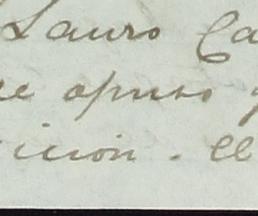 Lauro Ca
e opuso y
icion. El